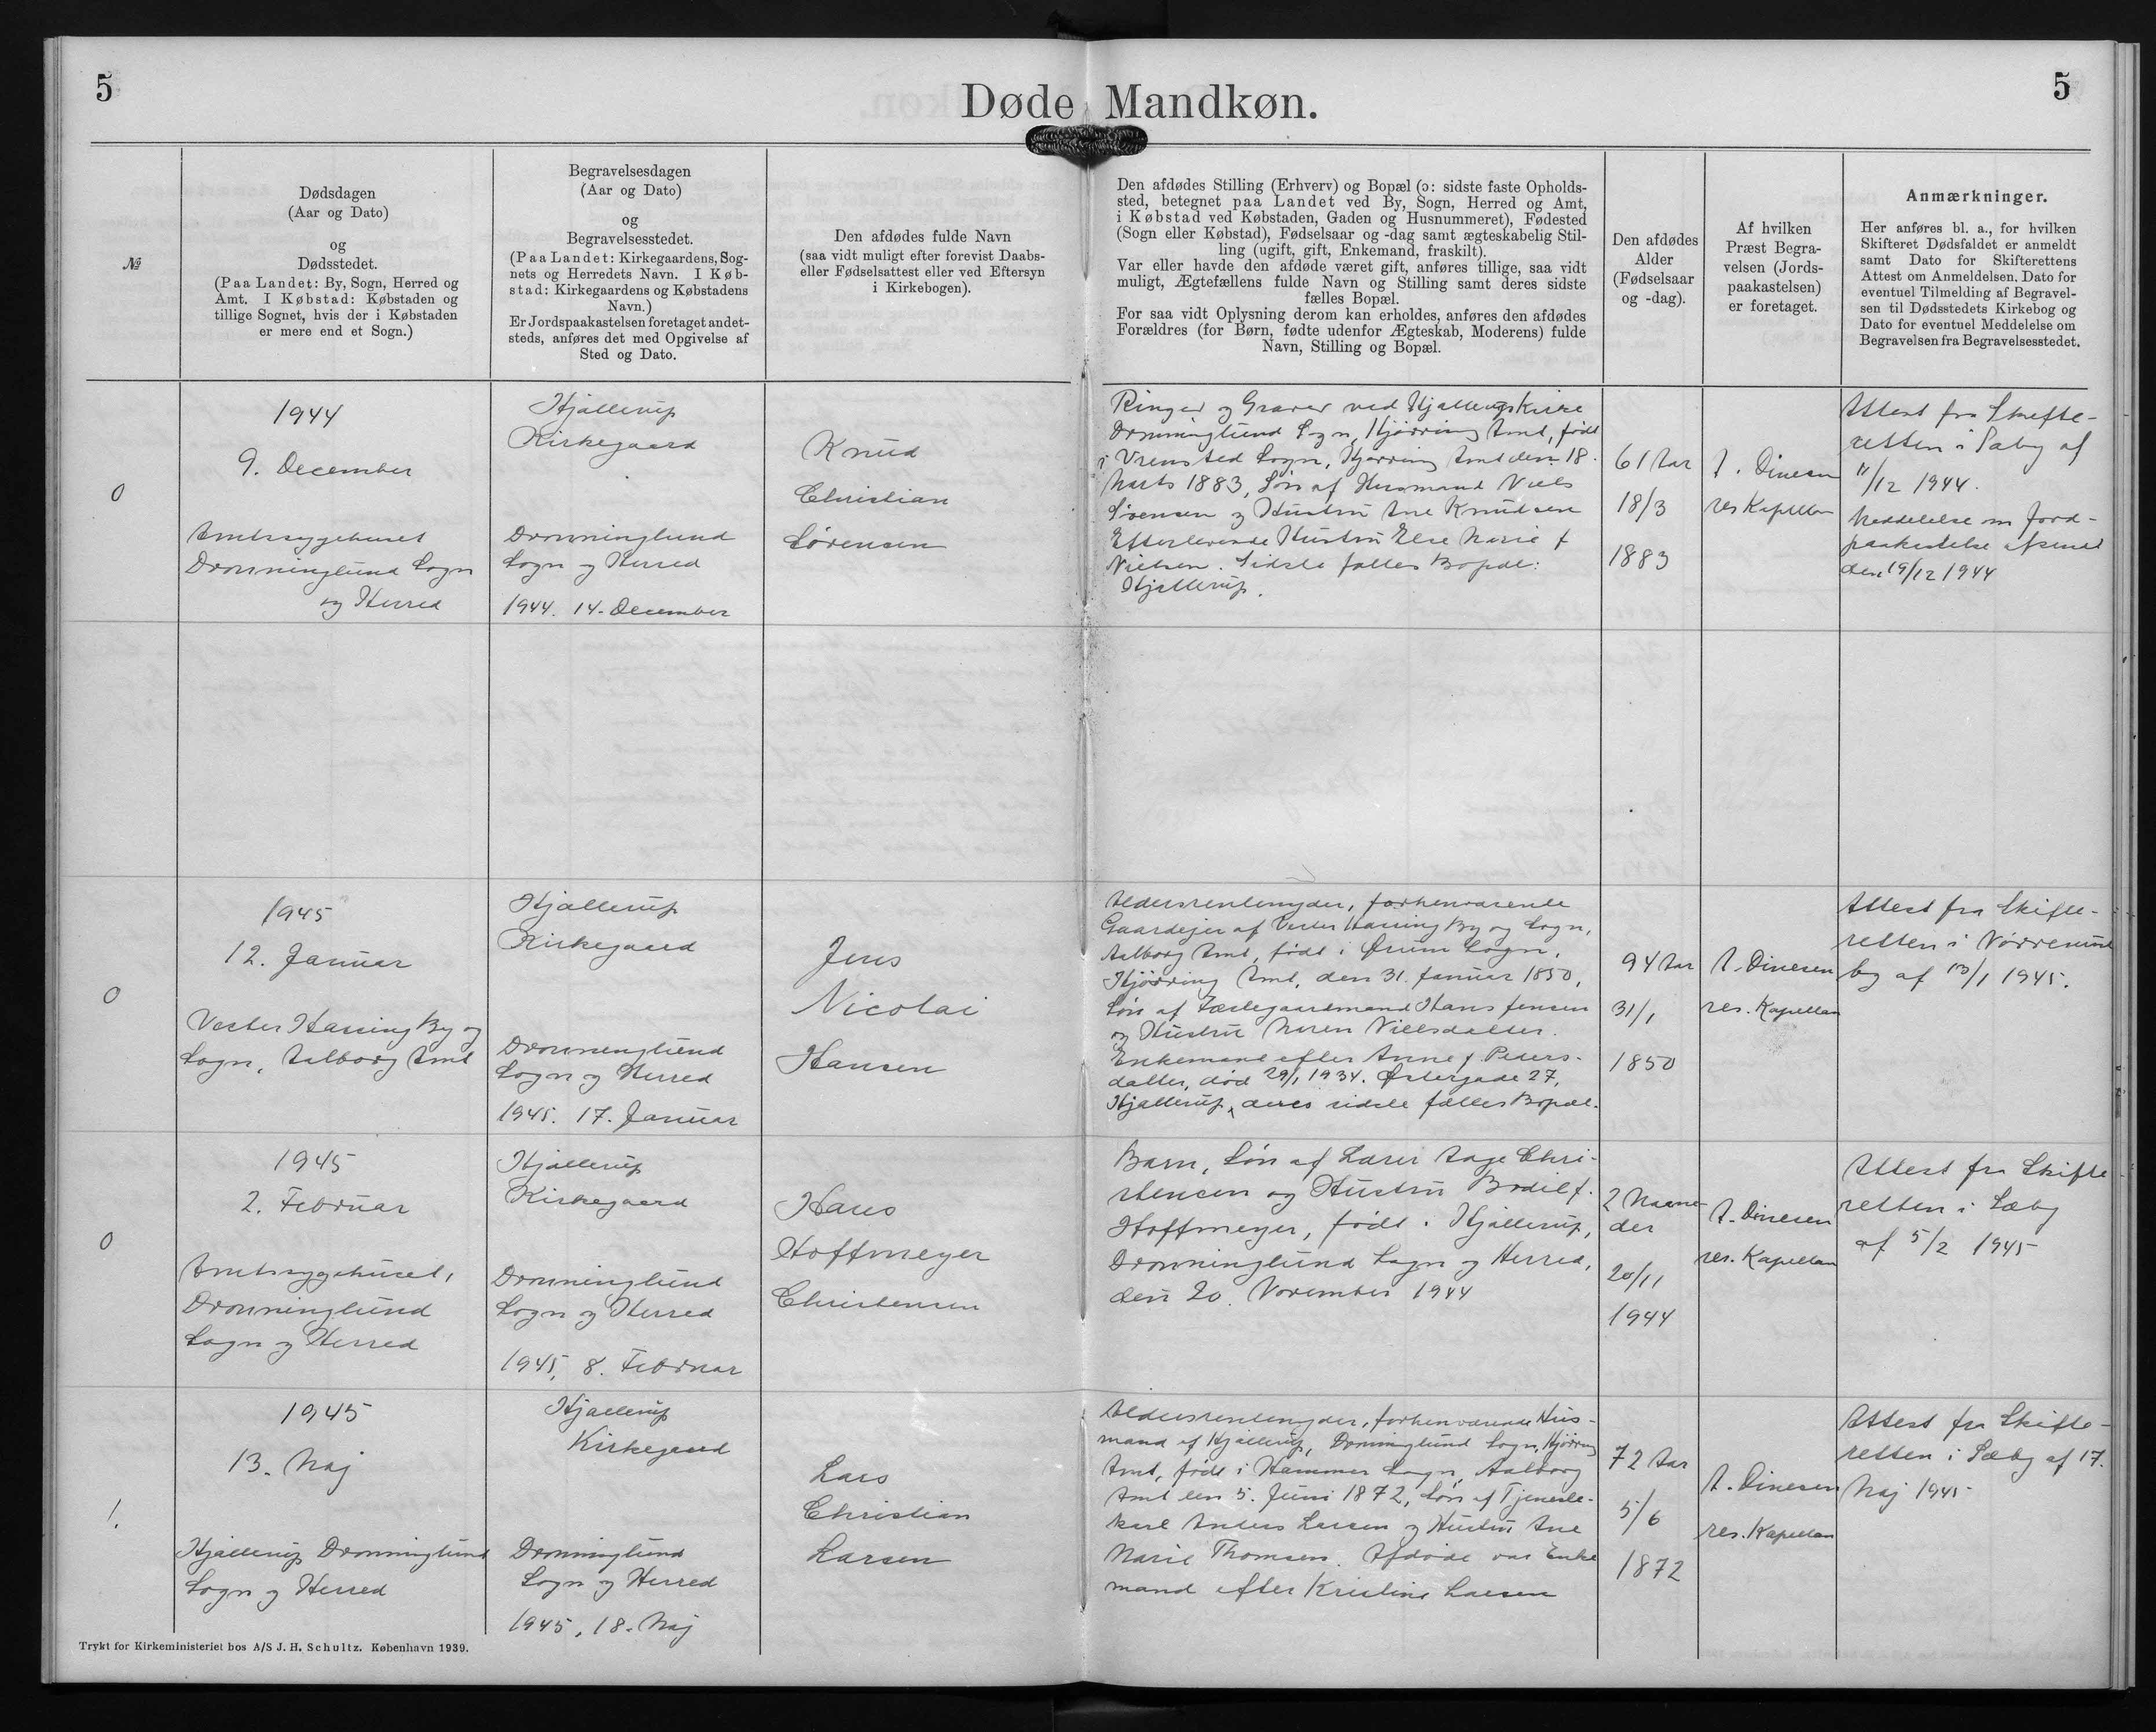 5
Døde Mandkøn.
5
№
Dødsdagen
(Aar og Dato)
og
Dødsstedet.
(Paa Landet: By, Sogn, Herred og
Amt. I Købstad: Købstaden og
tillige Sognet, hvis der i Købstaden
er mere end et Sogn.)
Begravelsesdagen
(Aar og Dato)
og
Begravelsesstedet.
(Paa Landet: Kirkegaardens, Sog-
nets og Herredets Navn. I Køb-
stad: Kirkegaardens og Købstadens
Navn.)
Er Jordspaakastelsen foretaget andet-
steds, anføres det med Opgivelse af
Sted og Dato.
Den afdødes fulde Navn
(saa vidt muligt efter forevist Daabs-
eller Fødselsattest eller ved Eftersyn
i Kirkebogen).
Den afdødes Stilling (Erhverv) og Bopæl (ɔ: sidste faste Opholds-
sted, betegnet paa Landet ved By, Sogn, Herred og Amt,
i Købstad ved Købstaden, Gaden og Husnummeret), Fødested
(Sogn eller Købstad), Fødselsaar og -dag samt ægteskabelig Stil-
ling (ugift, gift, Enkemand, fraskilt).
Var eller havde den afdøde været gift, anføres tillige, saa vidt
muligt, Ægtefællens fulde Navn og Stilling samt deres sidste
fælles Bopæl.
For saa vidt Oplysning derom kan erholdes, anføres den afdødes
Forældres (for Børn, fødte udenfor Ægteskab, Moderens) fulde
Navn, Stilling og Bopæl.
Den afdødes
Alder
(Fødselsaar
og -dag).
Af hvilken
Præst Begra-
velsen (Jords-
paakastelsen)
er foretaget.
Anmærkninger.
Her anføres bl. a., for hvilken
Skifteret Dødsfaldet er anmeldt
samt Dato for Skifterettens
Attest om Anmeldelsen. Dato for
eventuel Tilmelding af Begravel-
sen til Dødsstedets Kirkebog og
Dato for eventuel Meddelelse om
Begravelsen fra Begravelsesstedet.
0
1944
9. December
Amtssygehuset
Dronninglund Sogn
og Herred
Hjallerup
Kirkegaard
Dronninglund
Sogn og Herred
1944. 14. December
Knud
Christian
Sørensen
Ringer og Graver ved Hjallerup Kirke
Dronninglund Sogn, Hjørring Amt, født
i Vrensted Sogn, Hjørring Amt den 18.
Marts 1883, Søn af Husmand Niels
Sørensen og Hustru Ane Knudsen
Efterlevende Hustru Else Marie f
Nielsen. Sidste fælles Bopæl:
Hjallerup.
61 Aar
18/3
1883
A. Dinesen
res Kapellan
Attest fra Skifte-
retten i Sæby af
11/12 1944.
Meddelelse om Jord-
paakastelse afsendt
den 19/12 1944
0
1945
12. Januar
Vester Hassing By og
Sogn, Aalborg Amt
Hjallerup
Kirkegaard
Dronninglund
Sogn og Herred
1945. 17. Januar
Jens
Nicolai
Hansen
Aldersrentenyder, forhenværende
Gaardejer af Vester Hassing By og Sogn,
Aalborg Amt, født i Ørum Sogn,
Hjørring Amt, den 31. Januar 1850,
Søn af Fæstegaardmand Hans Jensen
og Hustru Maren Nielsdatter.
Enkemand efter Anne f. Peders-
datter, død 29/1 1934. Østergade 27,
Hjallerup, deres sidste fælles Bopæl.
94 Aar
31/1
1850
A. Dinesen
res. Kapellan
Attest fra Skifte-
retten i Nørresund
by af 13/1 1945.
0
1945
2. Februar
Amtssygehuset,
Dronninglund
Sogn og Herred
Hjallerup
Kirkegaard
Dronninglund
Sogn og Herred
1945, 8. Februar
Hans
Hoffmeyer
Christensen
Barn, Søn af Lærer Aage Chri-
stensen og Hustru Bodil f.
Hoffmeyer, født i Hjallerup,
Dronninglund Sogn og Herred,
den 20. November 1944
2 Maane-
der
20/11
1944
A. Dinesen
res. Kapellan
Attest fra Skifte
retten i Sæby
af 5/2 1945
1.
1945
13. Maj
Hjallerup Dronninglund
Sogn og Herred
Hjallerup
Kirkegaard
Dronninglund
Sogn og Herred
1945, 18. Maj
Lars
Christian
Larsen
Aldersrentenyder, forhenværende Hus-
mand af Hjallerup, Dronninglund Sogn, Hjørring
Amt, født i Hammer Sogn, Aalborg
Amt den 5. Juni 1872, Søn af Tjeneste-
karl Anders Larsen og Hustru Ane
Marie Thomsen. Afdøde var Enke
mand efter Kristine Larsen
72 Aar
5/6
1872
A. Dinesen
res. Kapellan
Attest fra Skifte-
retten i Sæby af 17.
Maj 1945
Trykt for Kirkeministeriet hos A/S J. H. Schultz. København 1939.